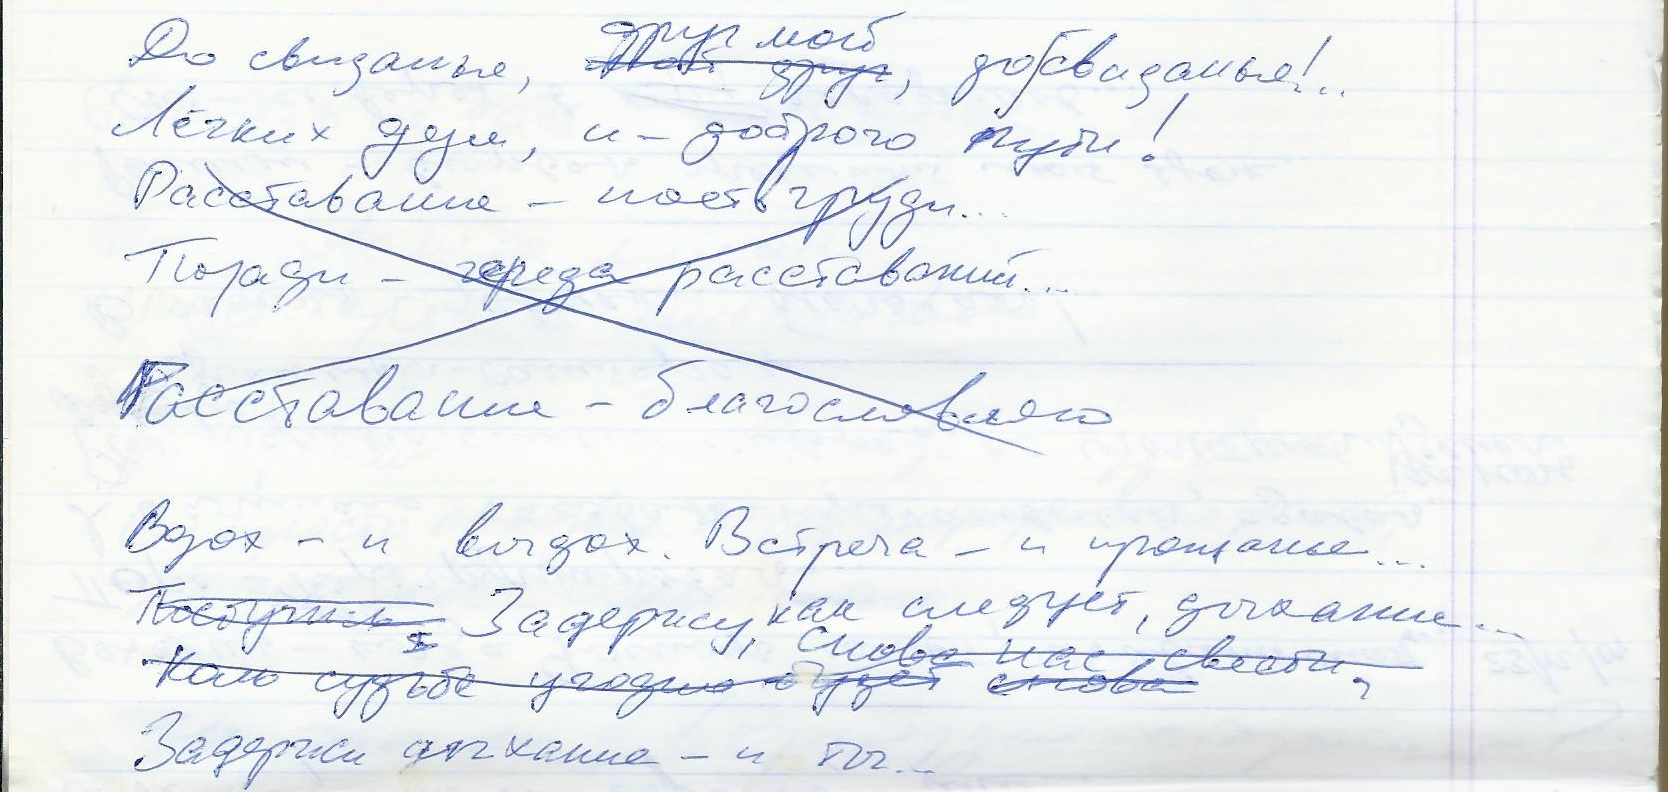 друг мой
До свиданья, Мой друг, до свиданья!..
Лёгких дум, и – доброго пути!
Расставание – пост в груди...
Позади – череда расставаний...
Расставание – благословляю
Вдох – и выдох. Встреча – и прощанье...
Задержу, как следует, дыхание...
Снова нас свести,
Коль судьбе угодно будет снова
Задержи дыхание – и ты...